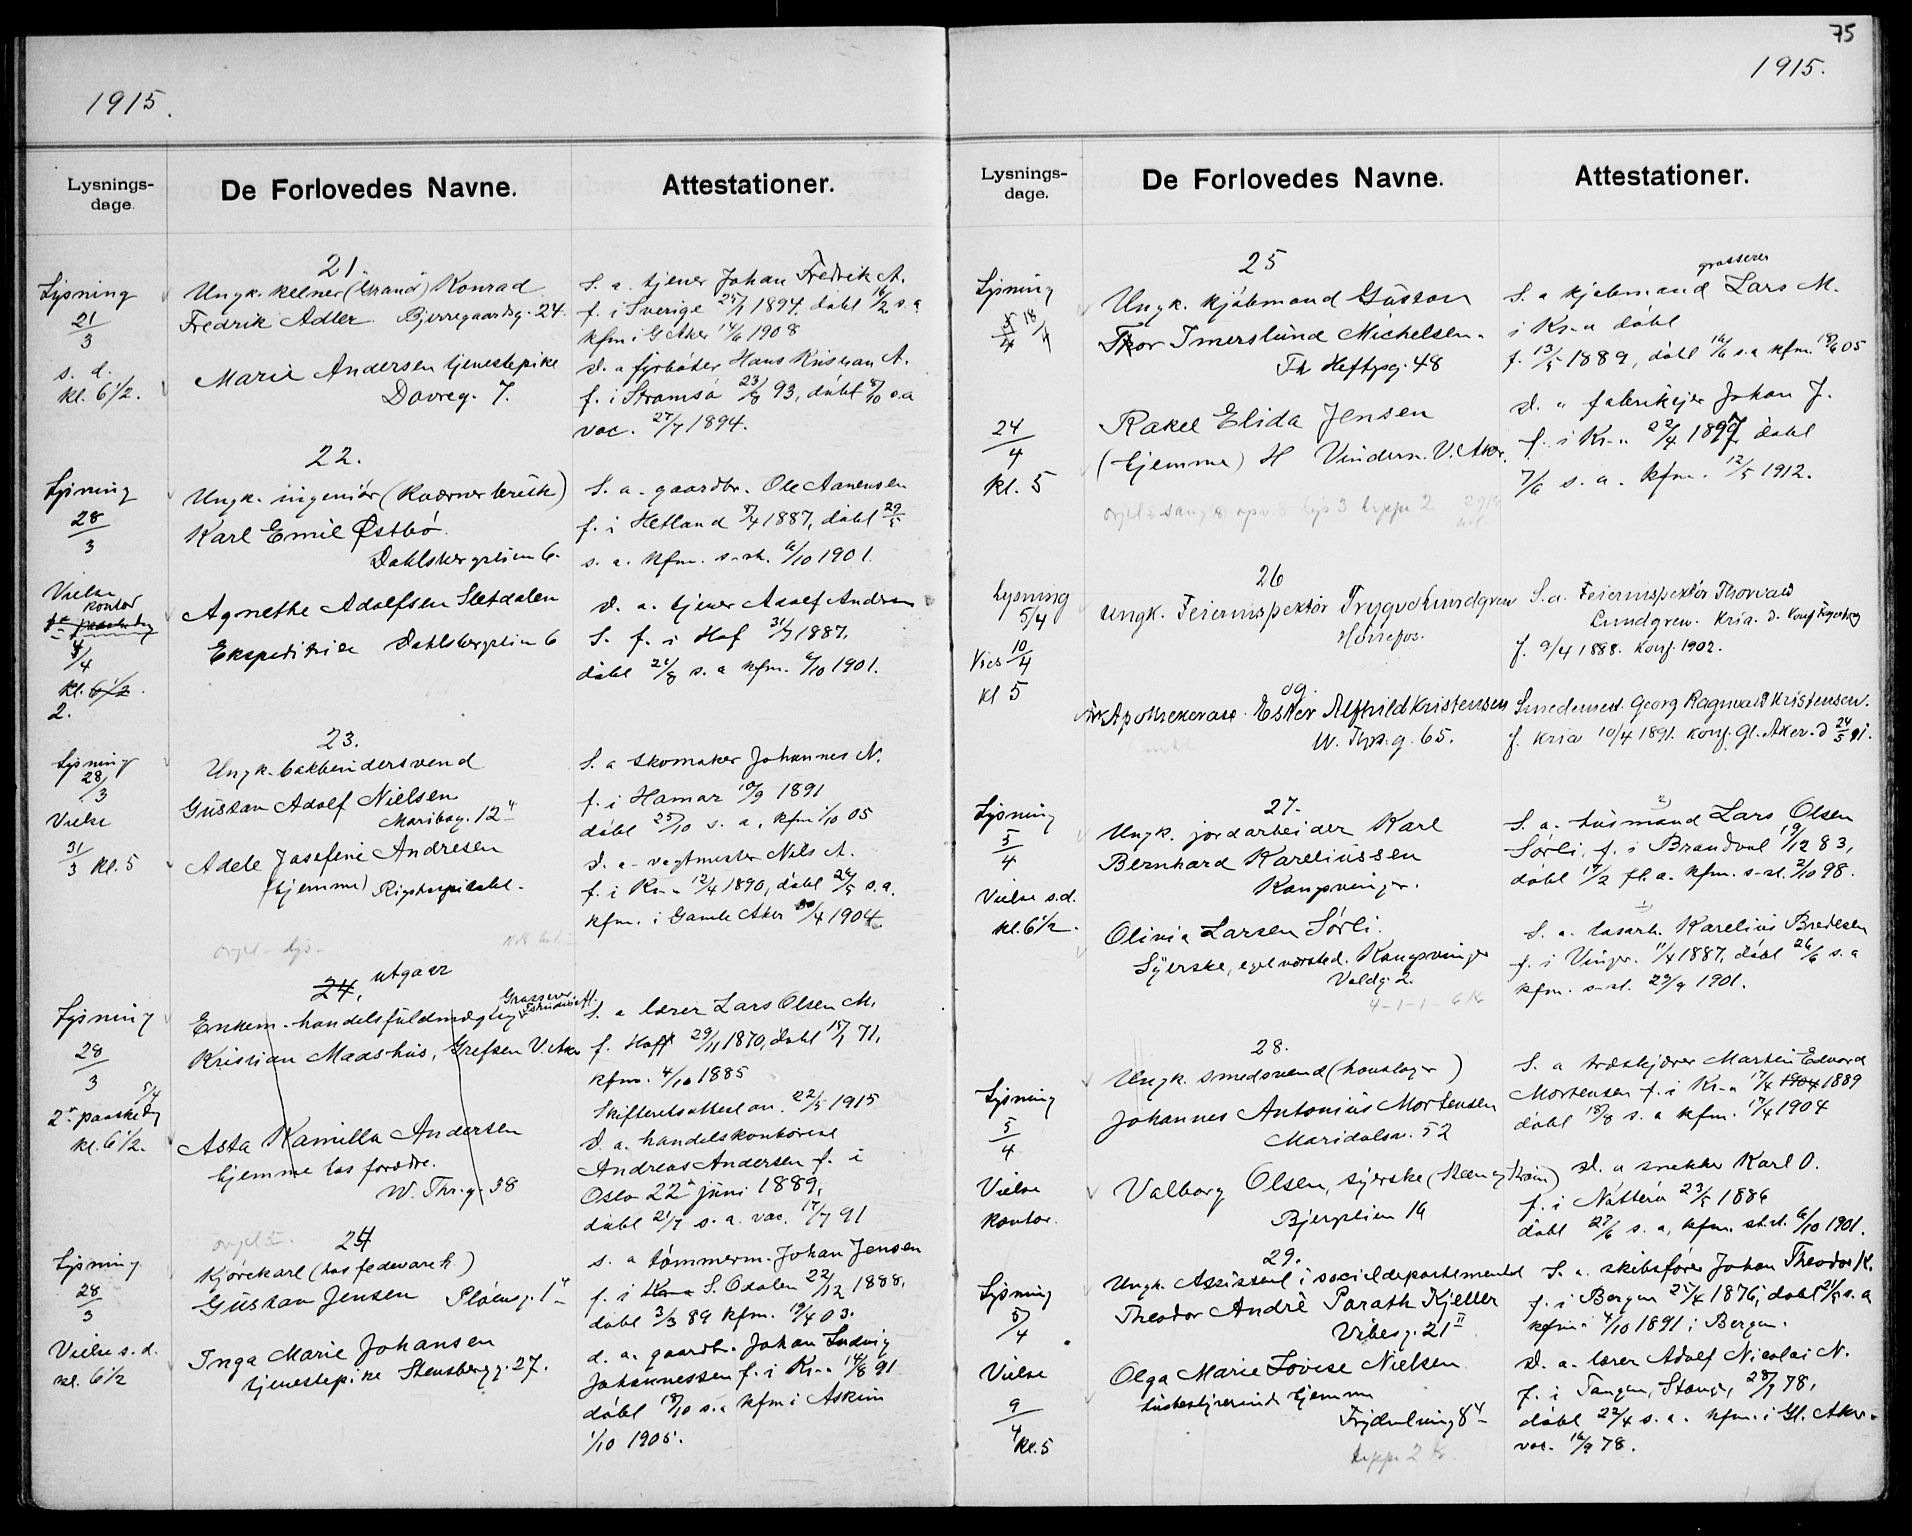 75
1915.
1915.
Lysnings-
dage.
De Forlovedes Navne.
Attestationer.
21
Lysning
21/3
s. d.
kl. 6 1/2.
Ungk. kelner (Grand) Konrad
Fredrik Adler. Bjerregaardsg. 24.
Marie Andersen tjenestepike
Dovreg. 7.
S. a. tjener Johan Fredrik A.
f. i Sverige 25/7 1894, døbt 16/2 s. a
kfm i G Aker 1908
D. a fyrbøter Hans Kristian A.
f. i Strømsø 23/8 93, døbt 8/10 s.a
vac. 27/7 1894.
22.
Lysning
28/3
Vielse
kontor
2den paaskedag
/4
kl. 6 1/2.
2.
Ungk. ingeniør (Kværner bruk)
Karl Emil Østbø
Dahlsbergstien 6.
Agnethe Adolfsen Sletdalen
Ekspeditrise Dahlsbergstien 6
S. a. gaardbr. Ole Aanensen
f. i Hetland 1887, døbt 29/5
s. a. kfm. s-st. 6/10 1901.
D. a. tjener Adolf Andersen
S. f. i Hof 31/7 1887.
døbt 21/8 s. a kfm. 6/10 1901.
23.
Lysning
28/3
Vielse
31/3 kl. 5
Ungk. bokbindersvend
Gustav Adolf Nielsen
Maribog. 12 4
Adele Josefine Andresen
(hjemme) Rigshospitalet.
S. a skomaker Johannes N.
f. i Hamar 10/9 1891
døbt 25/10 s. a. kfm 1/10 05
D. a. vagtmester Nils A.
f. i Kr.a 12/4 1890, døbt 26/5 s. a.
kfm. i Gamle Aker /4 1904
orgel - lys.
24. utgaar
Lysning
28/3
5/4
2den paaskedag
kl. 6 1/2.
Enkem. handelsfuldmægtig
Kristian Maashus, Grefsen V. Aker
Asta Kamilla Andersen
hjemme hos forældre.
W. Thr. g. 38
S. a lærer Lars Olsen M.
f. Hoff 29/11 1870, døbt 15/1 71,
kfm. 4/10 1885
Skifteretsattest av 22/5 1915
D. a. handelskontorist
Andreas Andersen f. i
Oslo 22de juni 1889,
døbt 21/7 s. a. vac. 17/7 91
24
Lysning
28/3
Vielse s. d.
kl. 6 1/2
Kjørekarl (hos fedevareh)
Gustav Jensen Pløensg. 1
Inga Marie Johansen
tjenestepike Stensbergg. 27.
S. a tømmerm. Johan Jensen
f. i S. Odalen 22/12 1888,
døbt 3/3 89 kfm. 19/4 03.
d. a. gaardbr. Johan Ludvig
Johannessen f. i Kr.a 14/8 91
døbt 18/10 s. a kfm i Askim
1/10 1905.
Lysnings-
dage.
De Forlovedes Navne.
Attestationer.
25
Lysning
18/4
24/4
kl. 5
Ungk. kjøbmand Gustav
Thor Imerslund Michelsen.
Th Heftysg. 48
Rakel Elida Jensen
(hjemme) H Vindern. V. Aker.
grosserer
S. a kjøbmand Lars M.
i Kr.a døbt
f. 13/5 1889, døbt 16/6 s.a kfm. 18/6 05
D. a fabrikejer Johan J.
f. i Kr.a 22/4 1897 døbt
7/6 s. a. kfm. 12/5 1912.
26
Lysning
5/4
Viet 10/4
kl 5
Ungk. Feierinspektør Trygve Lundgren
og
Frk Apothekerass. Ester Alfhild Kristensen
W. Thr. g. 65.
S. a. Feierinspektør Thorvald
Lundgren. Kria. D.
f. 9/4 1888. konf. 1902.
Smedemest. Georg Ragnvald Kristensen.
f. Kria 10/4 1891. konf. Gl. Aker. D 24/5 91.
27.
Lysning
5/4
Vielse s.d.
kl. 6 1/2.
Ungk. jordarbeider Karl
Bernhard Kareliussen
Kongsvinger.
Olivia Larsen Sørli.
Syerske, eget værksted. Kongsvinger
Voldg. 2.
S. a. husmand Lars Olsen
Sørli, f. i Brandval 19/12 83,
døbt 17/2 fl. a. kfm. s-st. 2/10 98.
S. a. løsarb. Karelius Bredesen
f. i Vinger. 11/4 1887, døbt 26/6 s. a
kfm. s-st. 29/9 1901.
28.
Lysning
5/4
Vielse
kontor.
Ungk. smedsvend (hovslager)
Johannes Antonius Mortensen
Maridalsv. 52
Valborg Olsen, syerske (Steen og Strøm)
Bjergstien 1a
S. a træskjærer Martin Edvard
Mortensen f. i Kr.a 17/4 1904 1889
døbt 18/8 s. a kfm. 17/4 1904
D. a snekker Karl O.
f. i Nøtterø 23/5 1886
døbt 27/6 s. a, kfm. st. st. 6/10 1901.
29.
Lysning
5/4
Vielse
9/4
kl. 5
Ungk. Assistent i socialdepartementet
Theodor André Parath Kjeller
Vibesg. 21 II
Olga Marie Lovise Nielsen
husbestyrerinde hjemme
S. a. skibsfører Johan Theodor K.
f. i Bergen 25/4 1876, døbt 21/5 s. a
kfm. 4/10 1891 i Bergen.
D. a. lærer Adolf Nicolai N.
f. i Tangen, Stange, 28/1 78,
døbt 22/4 s. a. kfm. i Gl. Aker.
vac. 16/9 78.